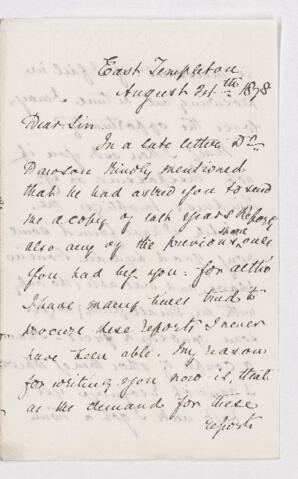 East Templeton
August 24th 1878
Dear Sir
In a late letter Dr
Dawson kindly mentioned
that he had asked you to send
me a copy of last years Report
also any of the previous more ones
you had by you: for altho'
I have many times tried to
procure these reports I never
have been able. My reason
for writing you now is, that
as the demand for these
reports